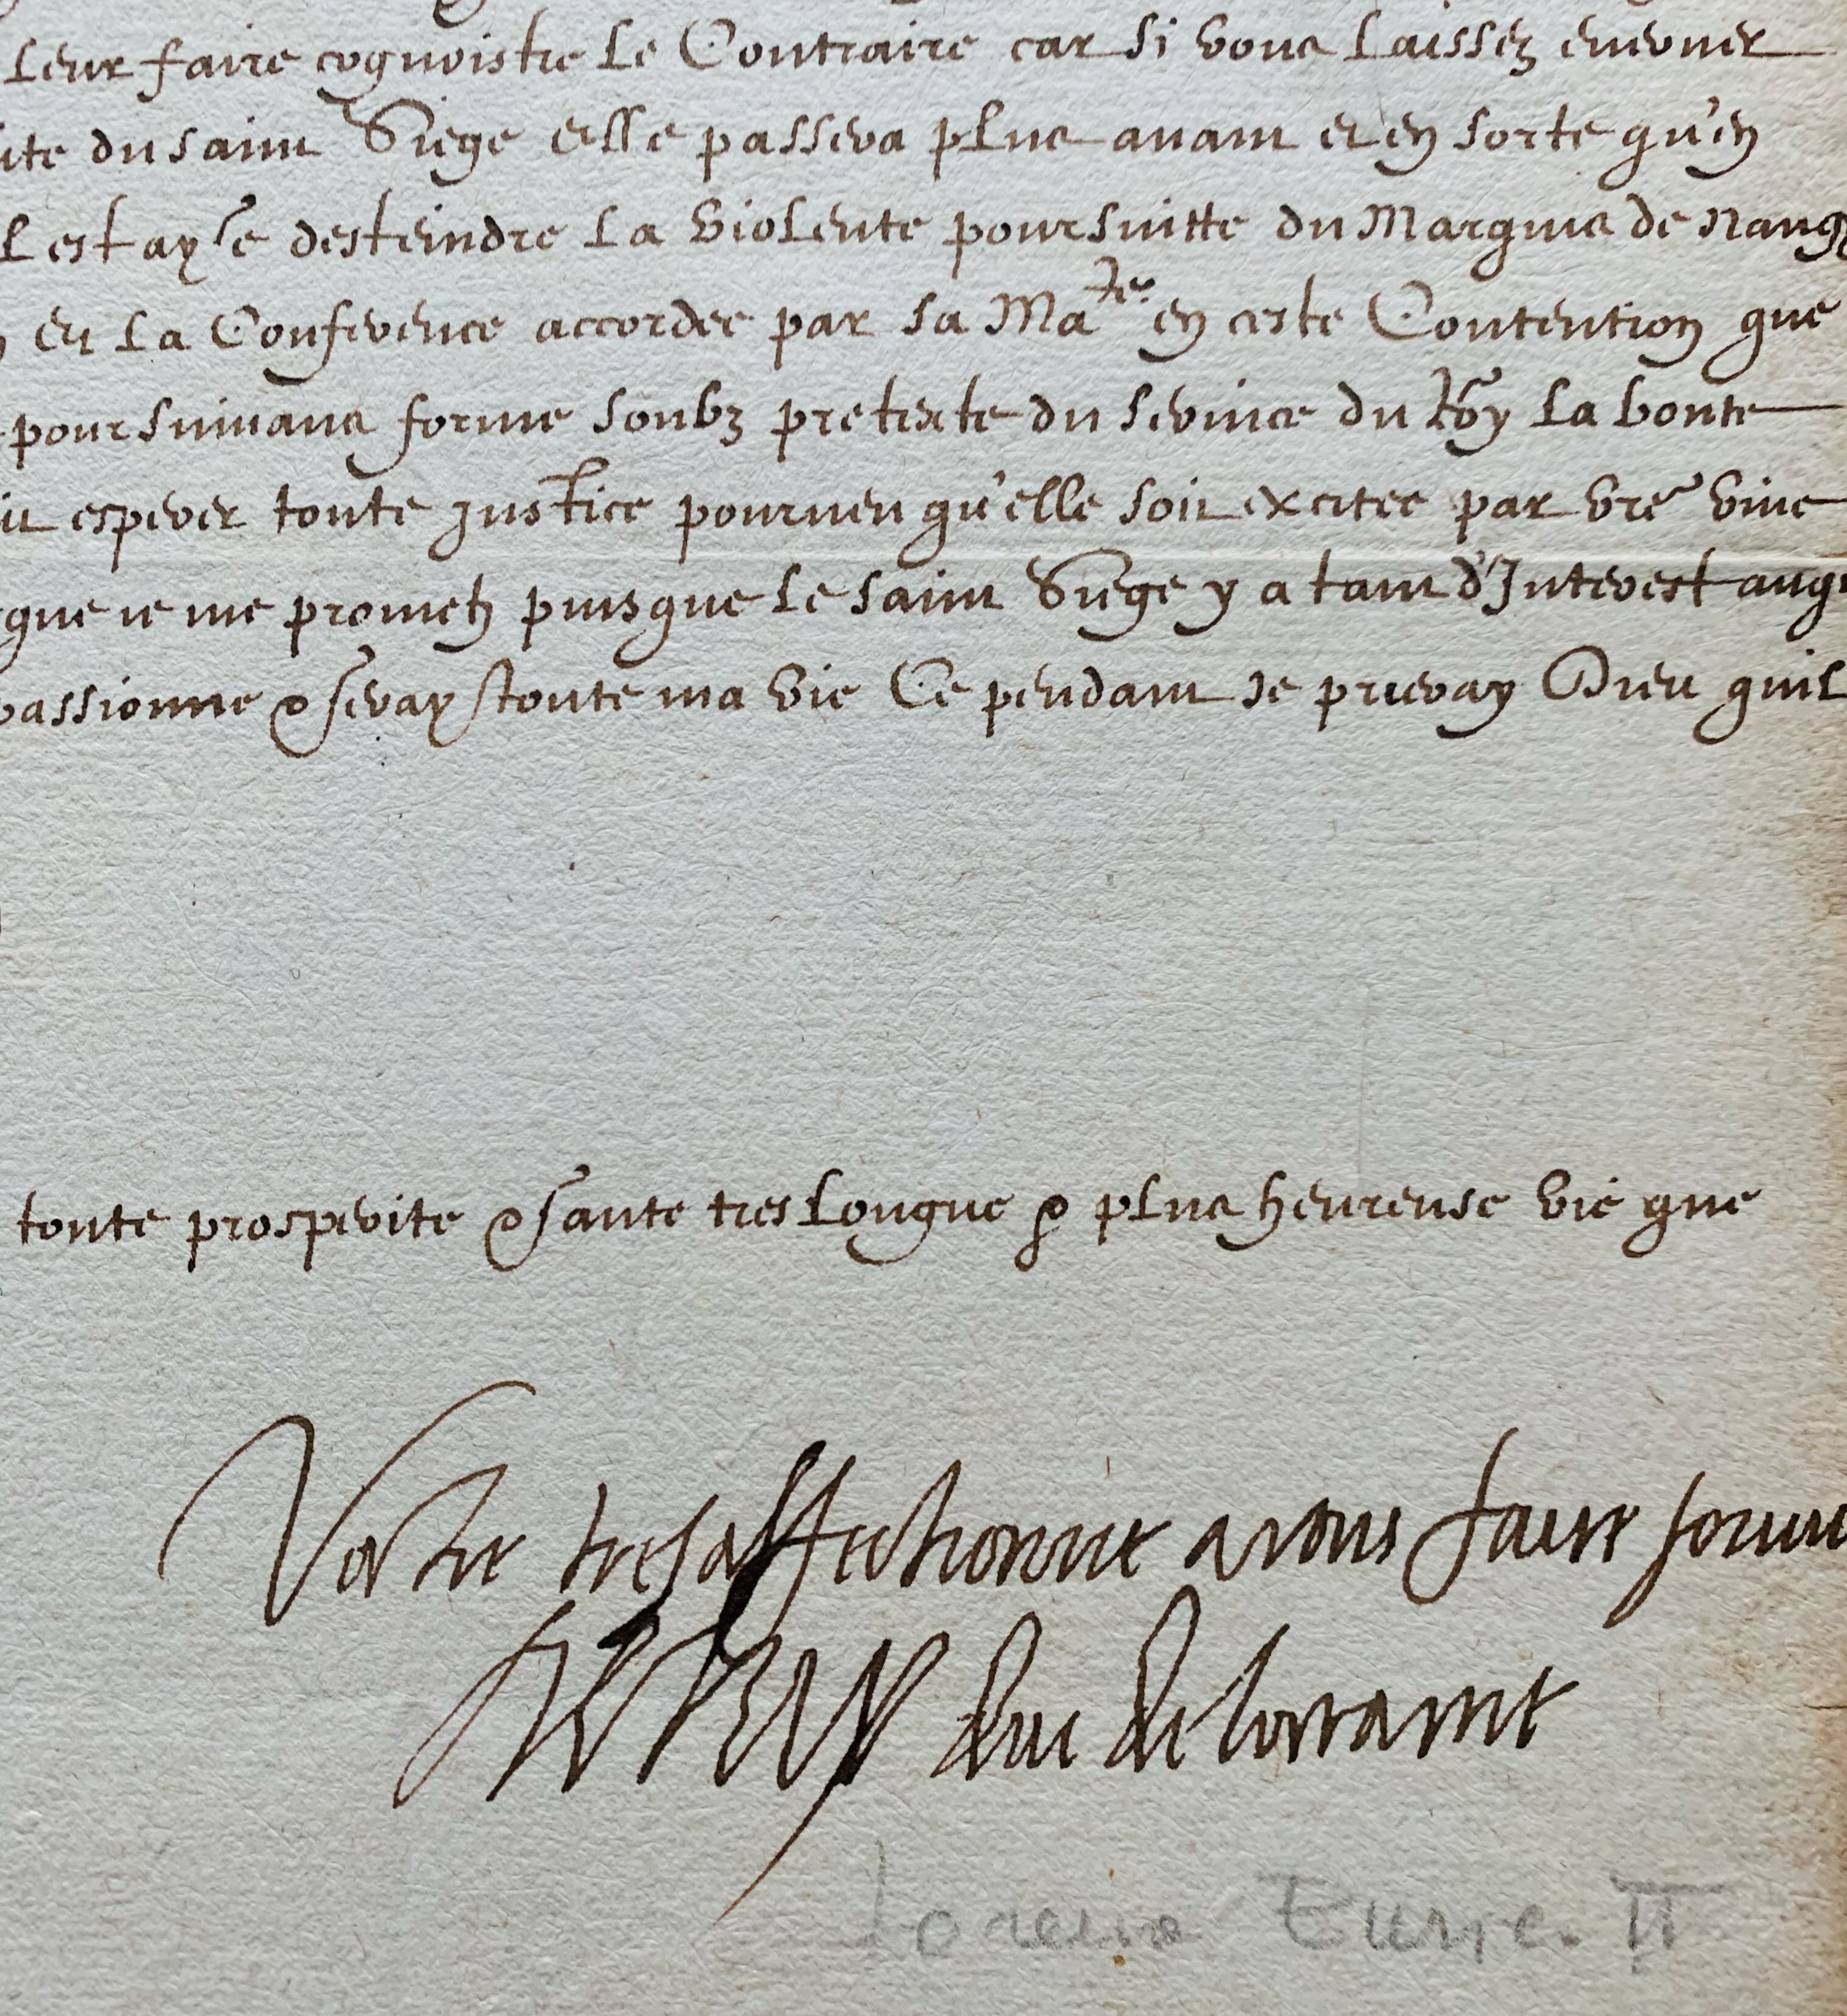 leur faire cognoistre le Contraire car si vous laissez enerver
ite du saint Siege elle passera plus avant et en sorte qu'en
l est aysé desteindre la violente poursuitte du Marquis de Nang
et la Conference accordee par sa Ma.te en ceste Contention que
poursuivans forme soubz pretexte du service du Roy la bonte
it esperer toute justice pourveu qu'elle soit excitee par vre vive
que ie me prometz puisque le saint Siege y a tant d'Interest
passionne & seray toute ma vie Ce pendant Je prieray Dieu quil
toute prosperite & sante tres longue & plus heureuse vie que
Vostre tresaffectionne a vous faire
Henry duc de lorraine
II